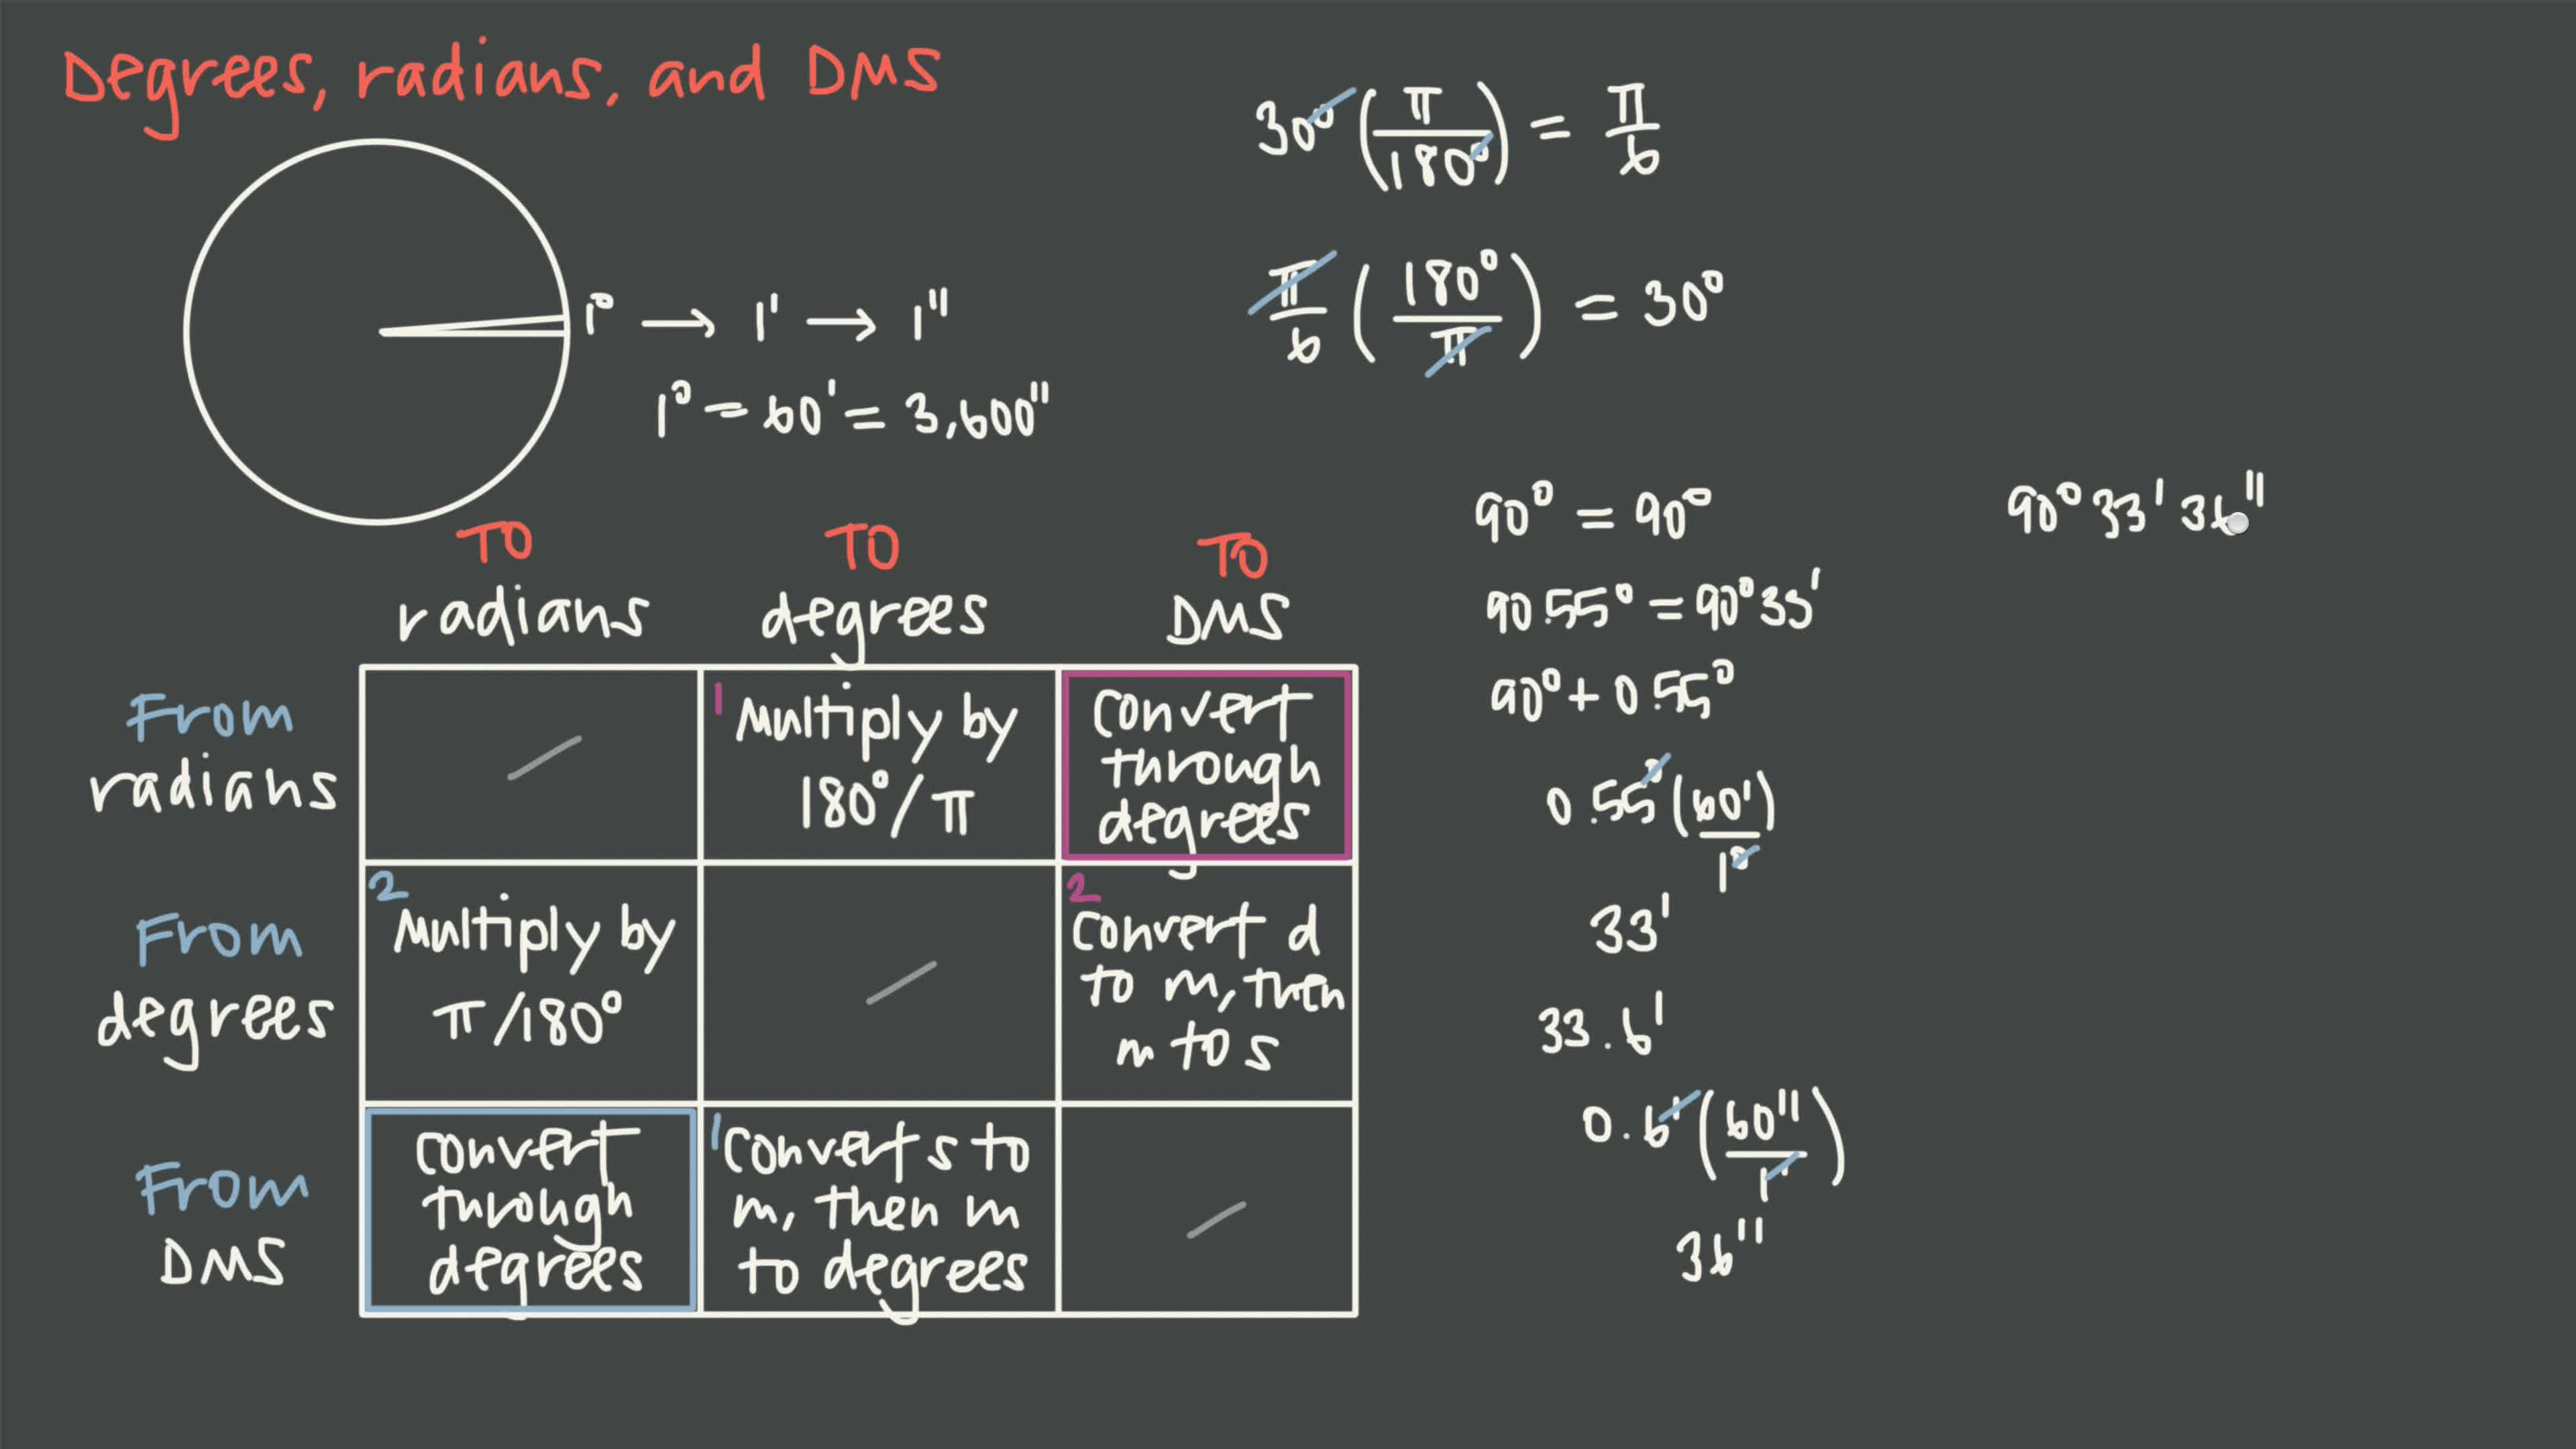 Degrees, radians, and DMS
1° → 1' → 1"
1° = 60' = 3,600"
30° (π/180°) = π/6
π/6 (180°/π) = 30°
TO radians
TO degrees
TO DMS
From radians
1 Multiply by
180°/π
convert
through
degrees
From degrees
2 Multiply by
π/180°
2 convert d
to m, then
m to s
From DMS
convert
through
degrees
1 convert s to
m, then m
to degrees
90° = 90°
90.55° = 90°33'
90° + 0.55°
0.55° (60'/1°)
33'
33.6'
0.6' (60"/1')
36"
90° 33' 36"